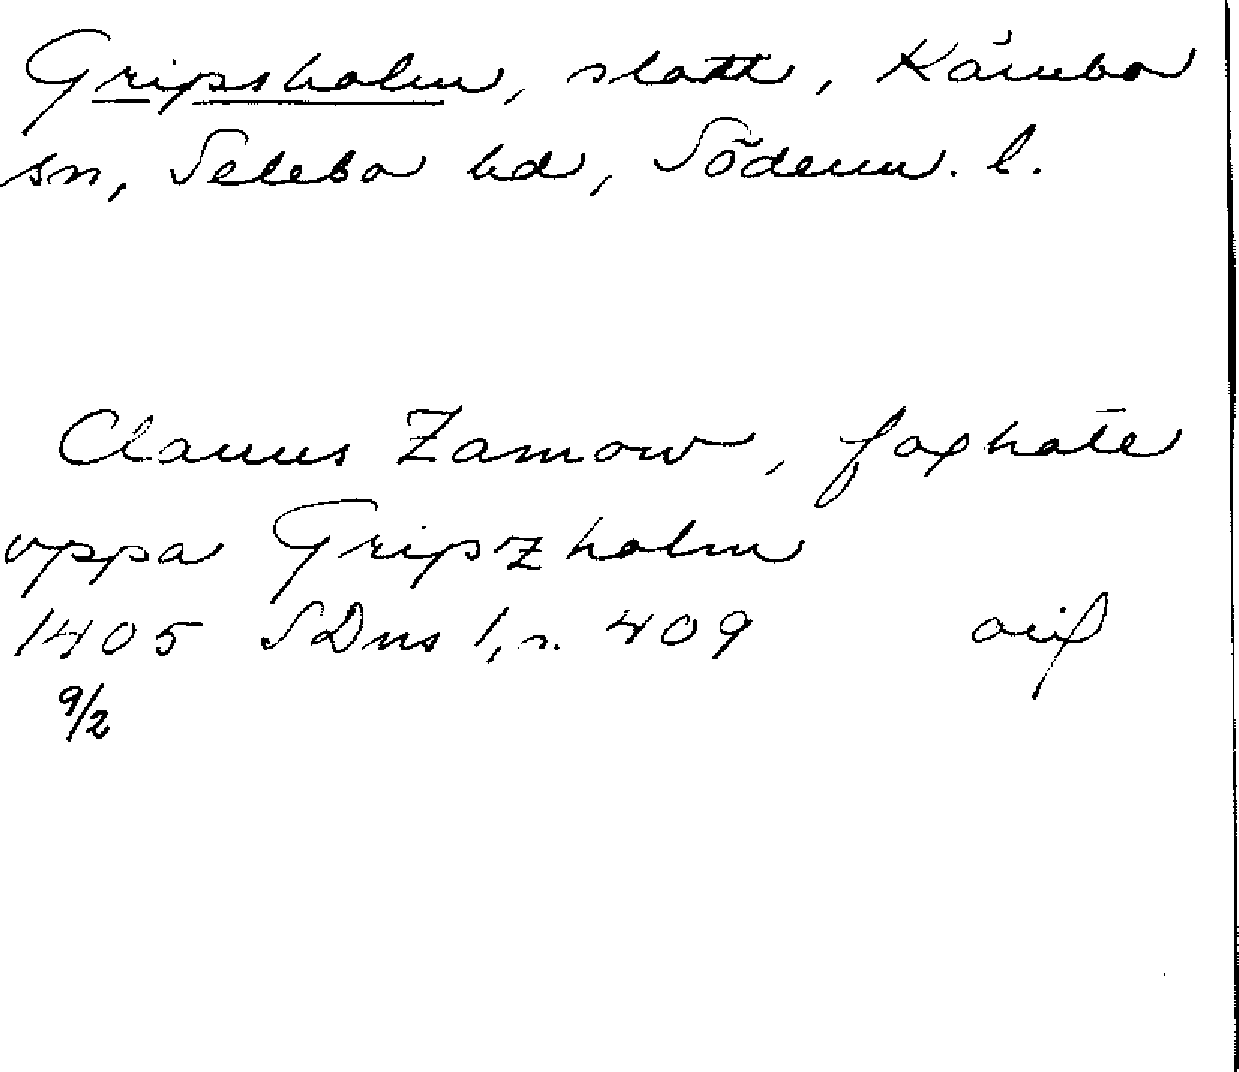 Gripsholm, slott, Kärnbo
sn, Selebo hd, Söderm. l.
Clauus Zamow, foghate
vppa Gripzholm
1405 SDns 1, n. 409
9/2